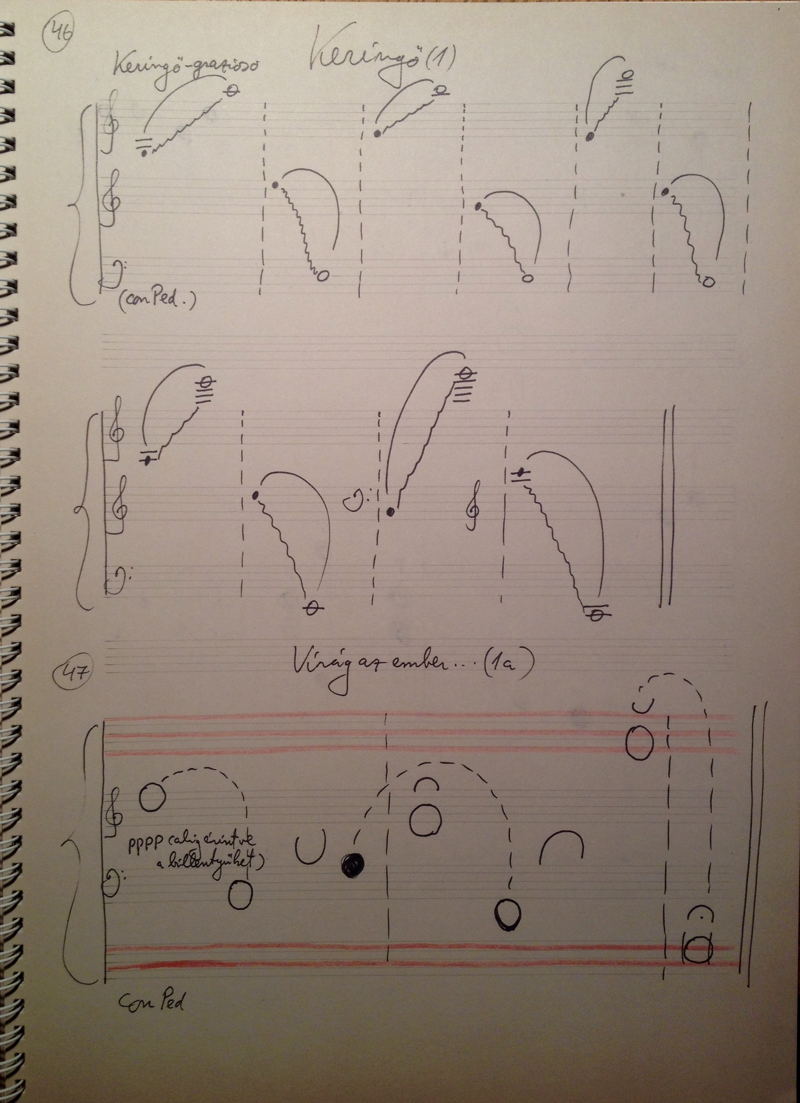 46
Keringő (1)
Keringő-grazioso
(con Ped.)
47
Virág az ember... (1a)
pppp (alig érintve
a billentyűket)
Con Ped